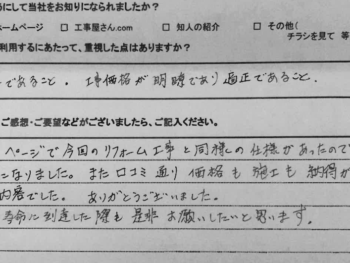 うにして当社をお知りになられましたか？
ームページ □ 工事屋さん.com □ 知人の紹介 □ その他（
チラシを見て 等
利用するにあたって、重視した点はありますか？
であること。工事価格が明瞭であり適正であること。
ご感想・ご要望などがございましたら、ご記入ください。
ページで今回のリフォーム工事と同様の仕様があったので
になりました。また口コミ通り価格も施工も納得が
内容でした。ありがとうございました。
寿命に到達した際も是非お願いしたいと思います。